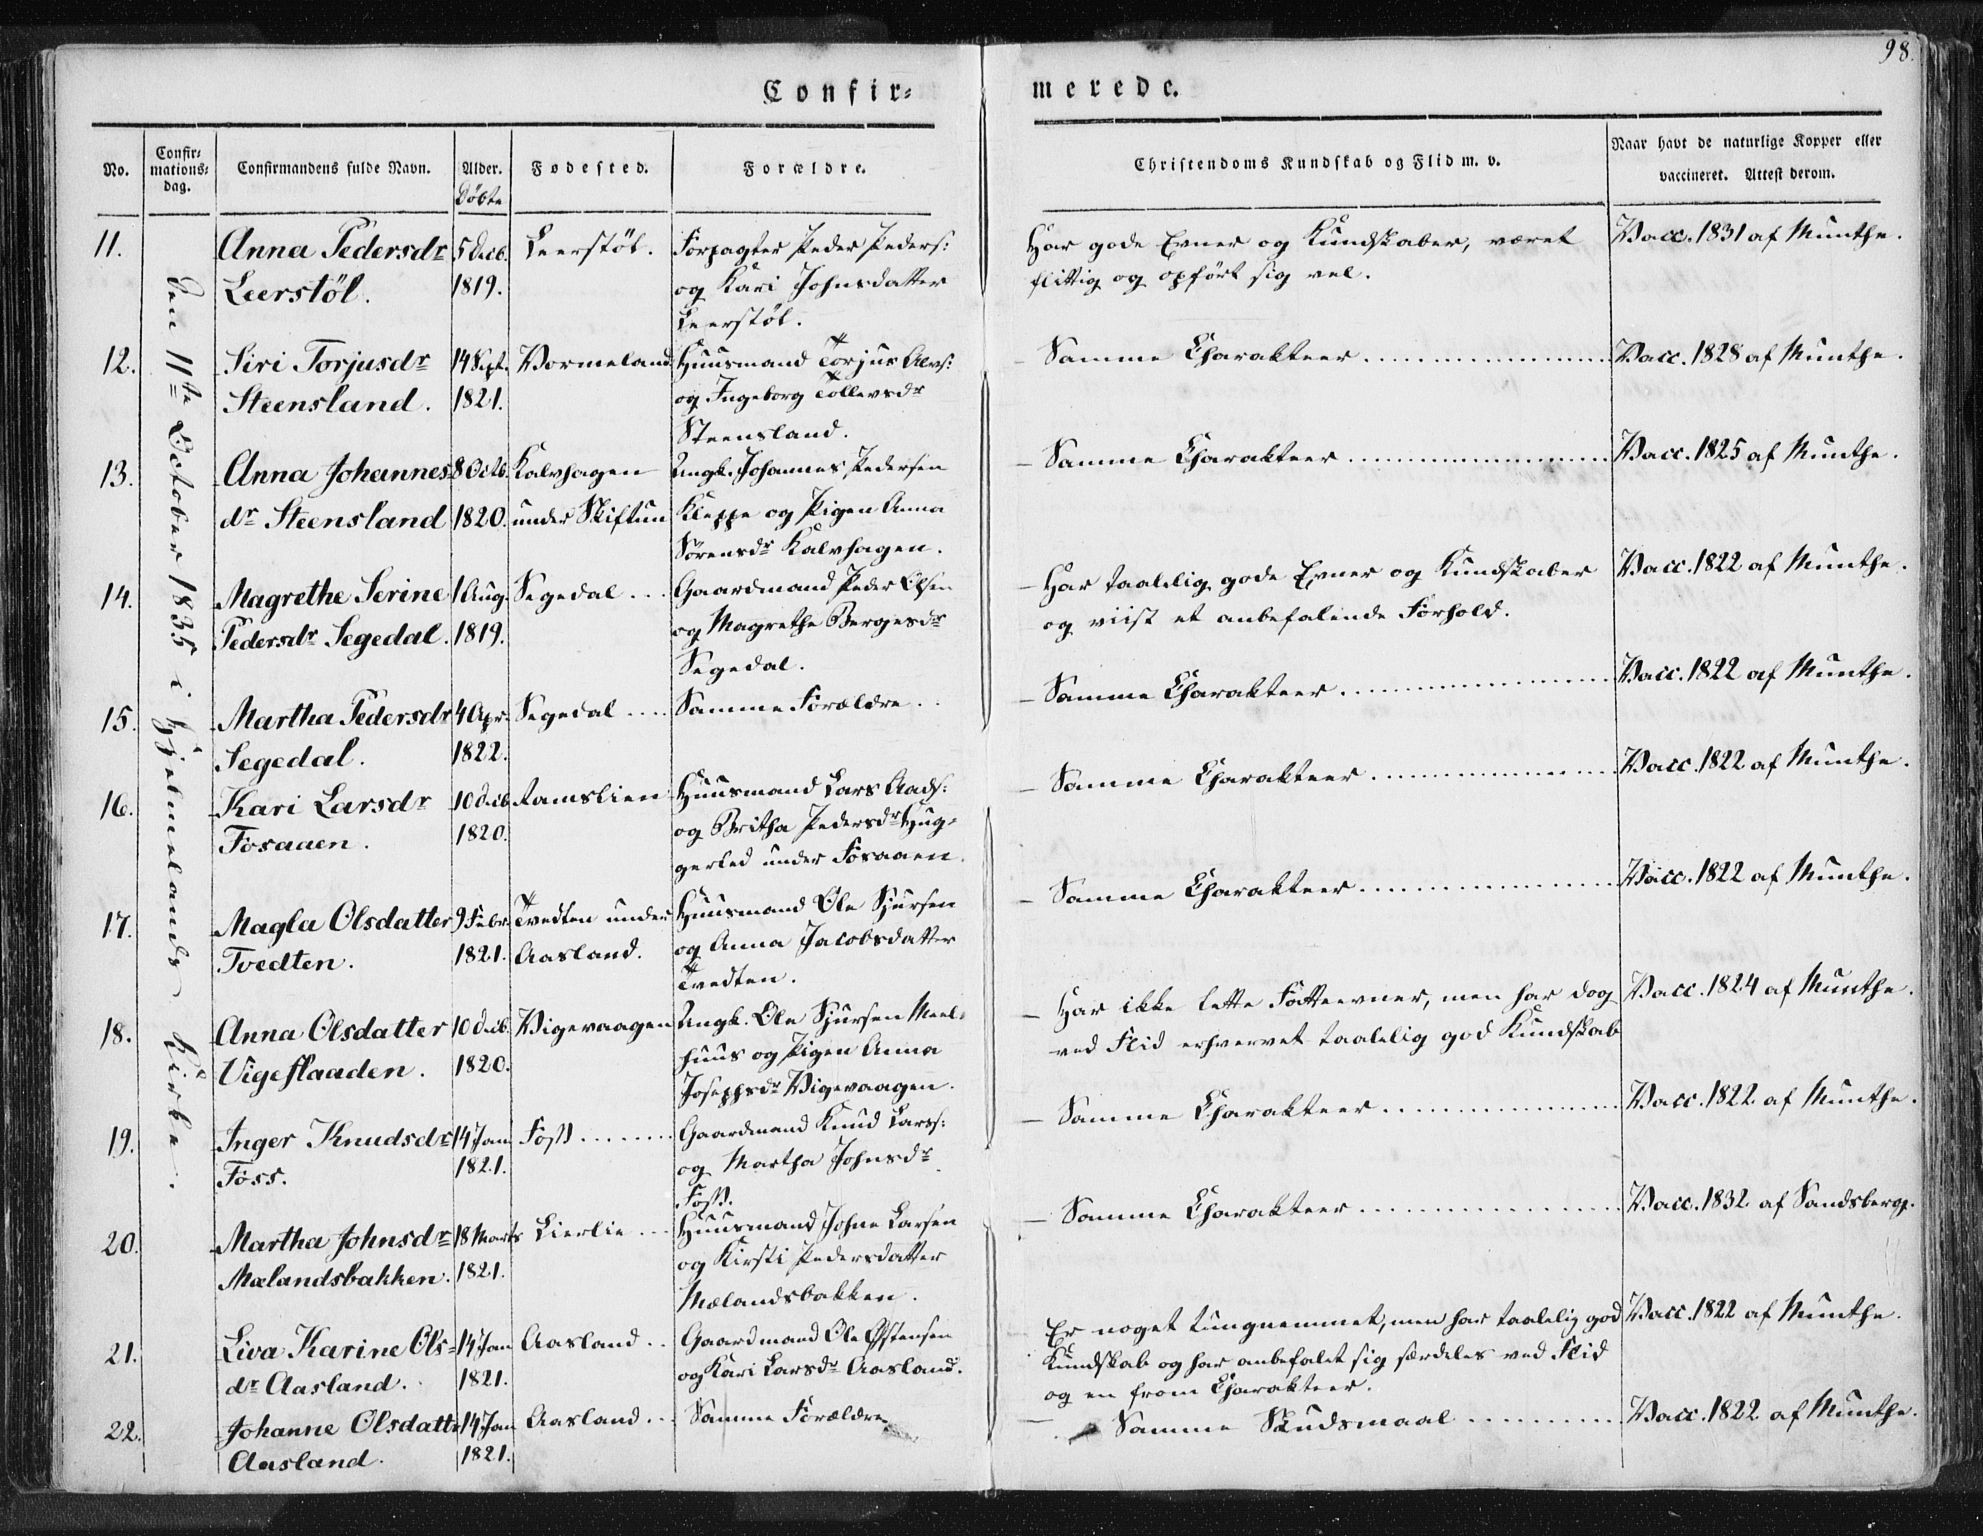 98.
Confir=
merede.
No.
Confir=
mations=
dag.
Confirmandens fulde Navn.
Alder.
Döbte
Fødested.
Forældre.
Christendoms Kundskab og Flid m. v.
Naar havt de naturlige Kopper eller
vaccineret. Attest derom.
Den 11te October 1835 i Hjelmelands Kirke.
11.
Anna Pedersdr
Leerstöl.
5 Decb.
1819.
Leerstöl.
Forpagter Peder Peders:
og Kari Johnsdatter
Leerstöl.
Har gode Evner og Kundskaber, været
flittig og opført sig vel.
Vacc. 1831 af Munthe.
12.
Siri Torjusdr
Steensland.
14 Sept.
1821.
Vormeland
Huusmand Torjus Alvs:
og Ingeborg Tollevsdr
Steensland.
Samme Charakteer
Vacc. 1828 af Munthe.
13.
Anna Johannes
dr Steensland
8 Octb.
1820.
Kalvhagen
under Skiftun
Ungk. Johannes Pedersen
Kleppe og Pigen Anna
Sörensdr Kalvhagen.
Samme Charakteer
Vacc. 1825 af Munthe.
14.
Magrethe Serine
Pedersdr Segedal.
1 Aug.
1819.
Segedal
Gaardmand Peder Olsen
og Magrethe Bergesdr
Segedal.
Har taalelig gode Evner og Kundskaber
og viist et anbefalende Forhold.
Vacc. 1822 af Munthe.
15.
Martha Pedersdr
Segedal.
4 Apr.
1822.
Segedal
Samme Forældre
Samme Charakteer
Vacc. 1822 af Munthe.
16.
Kari Larsdr
Fosaaen.
10 Decb
1820.
Ramslien
Huusmand Lars Aads:
og Britha Pedersdr Hug=
gerled under Fosaaen.
Samme Charakteer
Vacc. 1822 af Munthe.
17.
Magla Olsdatter
Tvedten.
9 Febr
1821.
Tvedten under
Aasland.
Huusmand Ole Sjursen
og Anna Jacobsdatter
Tvedten.
Samme Charakteer
Vacc. 1822 af Munthe.
18.
Anna Olsdatter
Vigeflaaden.
10 Decb.
1820.
Vigevaagen
Ungk. Ole Sjursen Meel=
huus og Pigen Anna
Josephsdr Vigevaagen.
Har ikke lette Fatteevner, men har dog
ved Flid erhvervet taalelig god Kundskab
Vacc. 1824 af Munthe.
19.
Inger Knudsdr
Foss.
14 Jan
1821.
Foss
Gaardmand Knud Larss:
og Martha Johnsdr
Foss.
Samme Charakteer
Vacc. 1822 af Munthe.
20.
Martha Johnsdr
Mælandsbakken.
18 Marts
1821.
Lierlie
Huusmand Johne Larsen
og Kirsti Pedersdatter
Mælandsbakken.
Samme Charakteer
Vacc. 1832 af Sandsberg.
21.
Liva Karine Ols=
dr Aasland.
14 Jan
1821.
Aasland
Gaardmand Ole Østensen
og Kari Larsdr Aasland.
Er noget tungnemmet, men har taalelig god
Kundskab og har anbefalet sig særdeles ved Flid
og en from Charakteer.
Vacc. 1822 af Munthe.
22.
Johanne Olsdattr
Aasland.
14 Jan
1821.
Aasland
Samme Forældre
Samme Skudsmaal
Vacc. 1822 af Munthe.